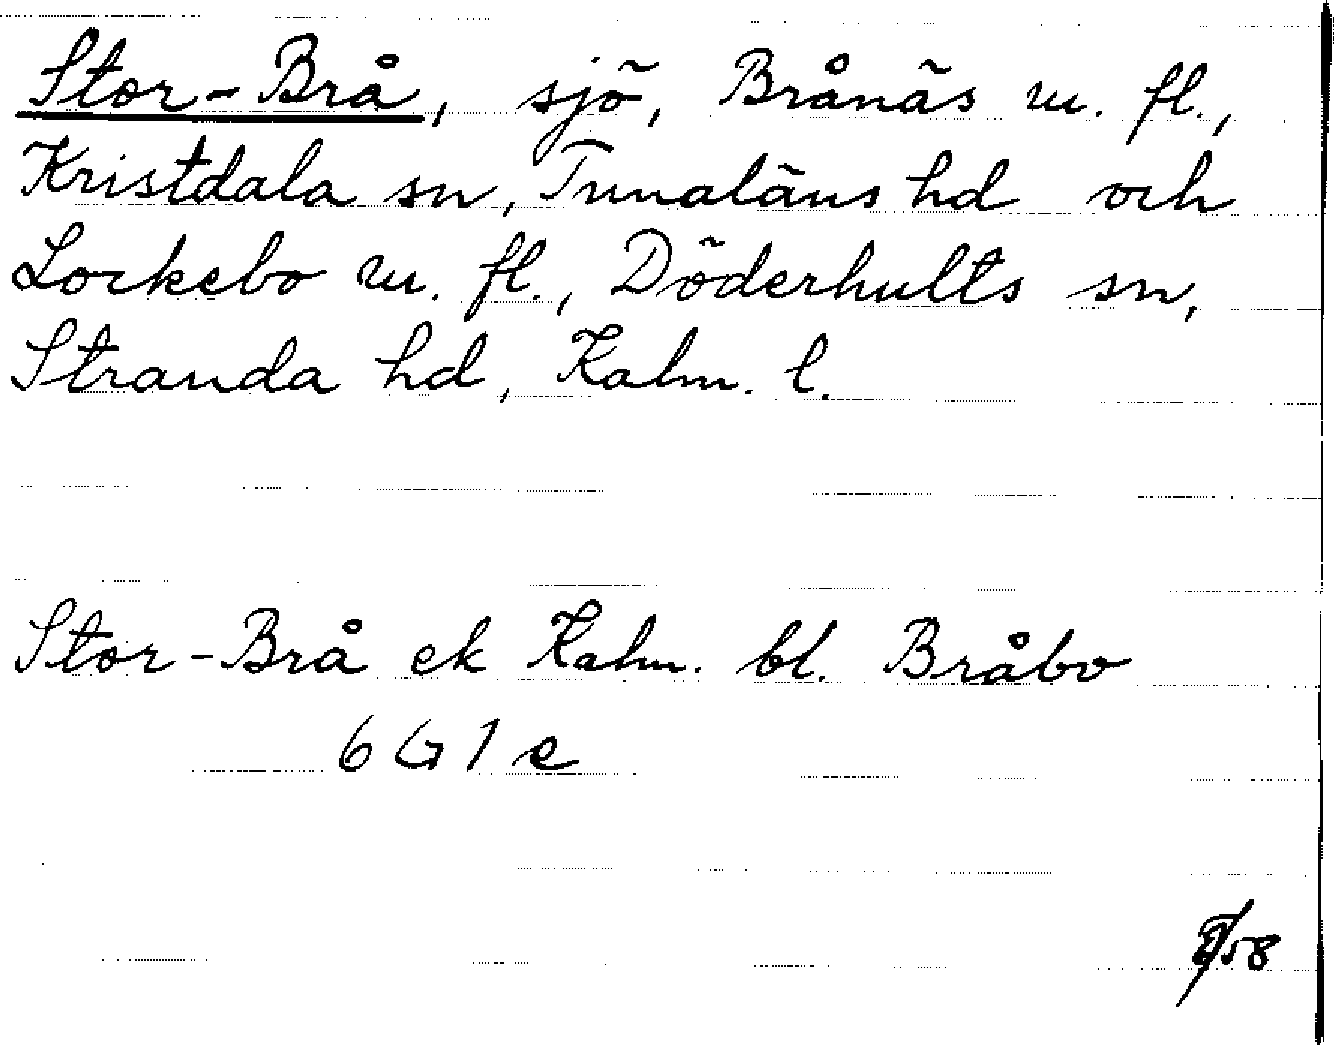 Stor-Brå, sjö, Brånäs m. fl.,
Kristdala sn, Tunaläns hd och
Lockebo m. fl., Döderhults sn,
Stranda hd, Kalm. l.
Stor-Brå ek Kalm. bl. Bråbo
6G1e
58